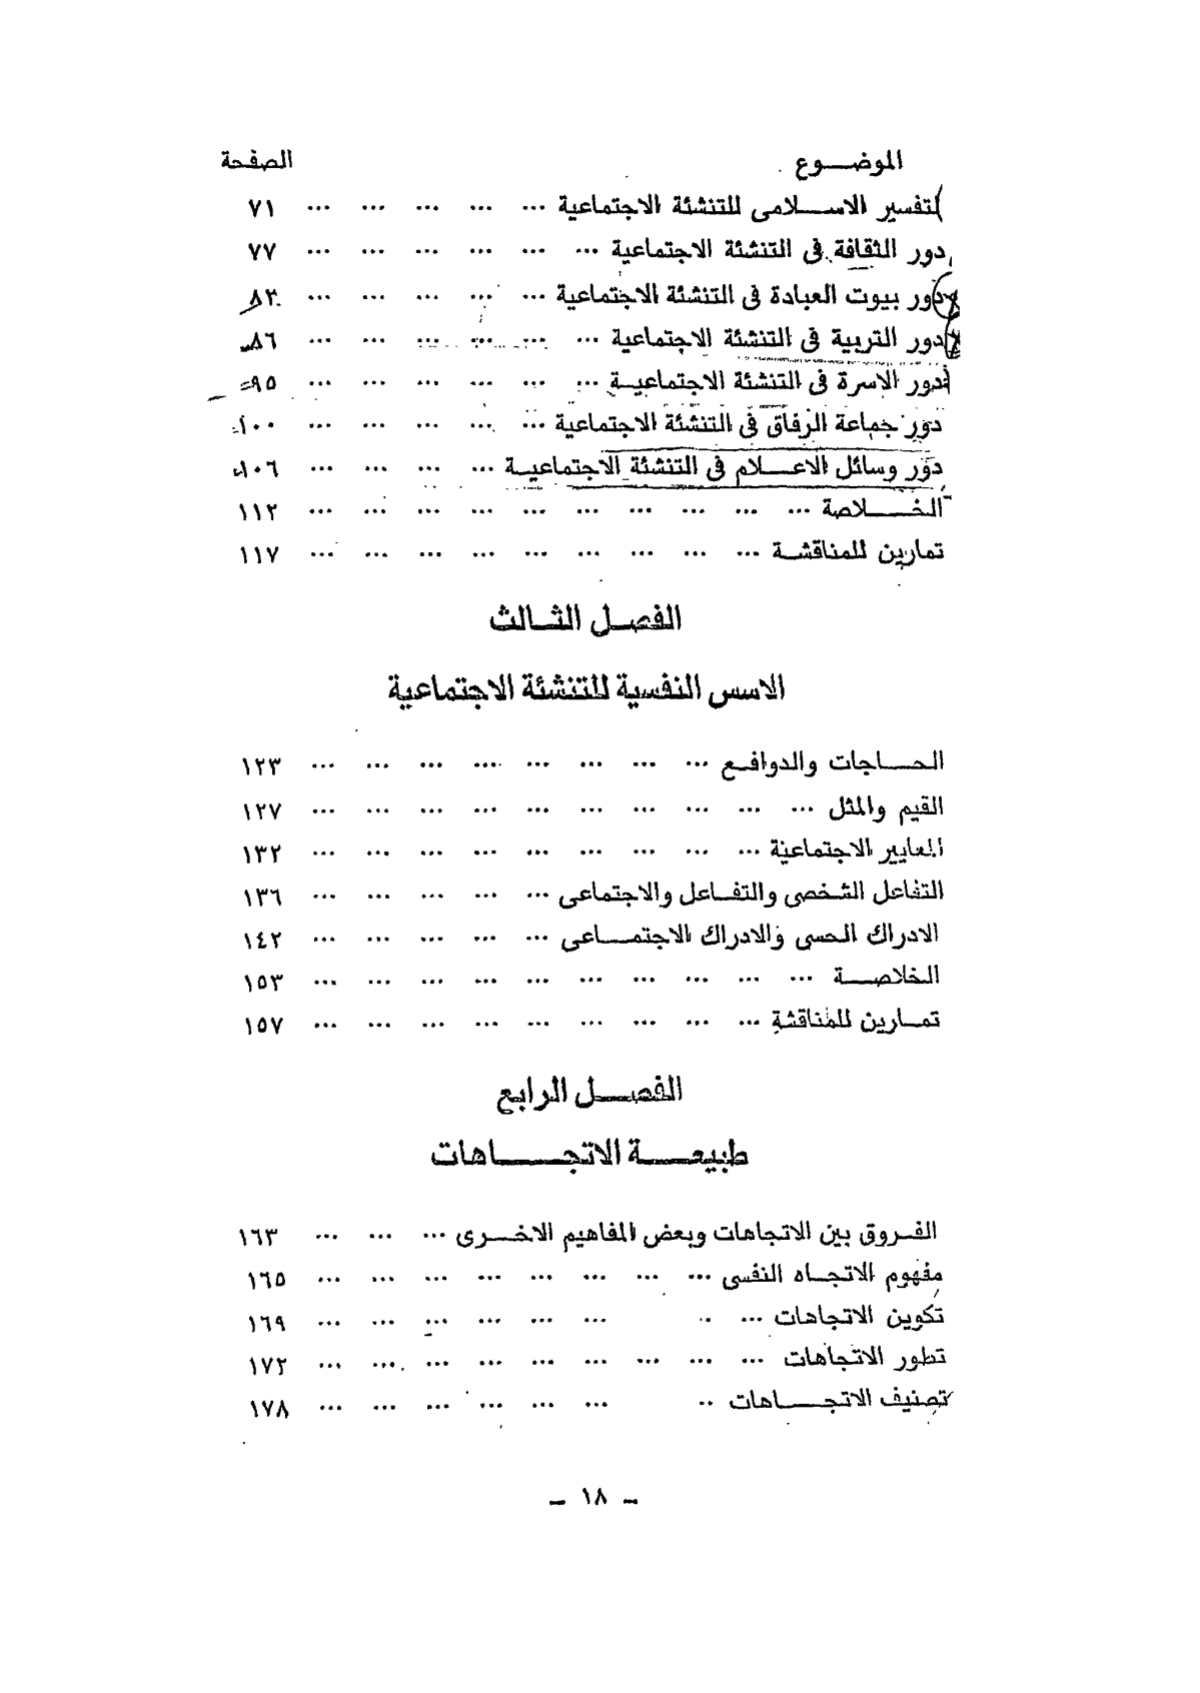 الموضوع الصفحة
التفسير الاسلامى للتنشئة الاجتماعية ... ... ... ... ... ٧١
دور الثقافة فى التنشئة الاجتماعية ... ... ... ... ... ... ٧٧
دور بيوت العبادة فى التنشئة الاجتماعية ... ... ... ... ... ٨٣
دور التربية فى التنشئة الاجتماعية ... ... ... ... ... ... ٨٦
دور الاسرة فى التنشئة الاجتماعية ... ... ... ... ... ... ٩٥
دور جماعة الرفاق فى التنشئة الاجتماعية ... ... ... ... ... ١٠٠
دور وسائل الاعلام فى التنشئة الاجتماعية ... ... ... ... ١٠٦
الخلاصة ... ... ... ... ... ... ... ... ... ... ١١٢
تمارين للمناقشة ... ... ... ... ... ... ... ... ... ١١٧
الفصل الثالث
الاسس النفسية للتنشئة الاجتماعية
الحاجات والدوافع ... ... ... ... ... ... ... ... ١٢٣
القيم والمثل ... ... ... ... ... ... ... ... ... ... ١٢٧
المعايير الاجتماعية ... ... ... ... ... ... ... ... ... ١٣٢
التفاعل الشخصى والتفاعل والاجتماعى ... ... ... ... ... ١٣٦
الادراك الحسى والادراك الاجتماعى ... ... ... ... ... ١٤٢
الخلاصة ... ... ... ... ... ... ... ... ... ... ١٥٣
تمارين للمناقشة ... ... ... ... ... ... ... ... ... ١٥٧
الفصل الرابع
طبيعة الاتجاهات
الفروق بين الاتجاهات وبعض المفاهيم الاخرى ... ... ... ١٦٣
مفهوم الاتجاه النفسى ... ... ... ... ... ... ... ... ١٦٥
تكوين الاتجاهات ... .. ... ... ... ... ... ... ١٦٩
تطور الاتجاهات ... ... ... ... ... ... ... ... ... ١٧٢
تصنيف الاتجاهات .. ... ... ... ... ... ... ١٧٨
- ١٨ -